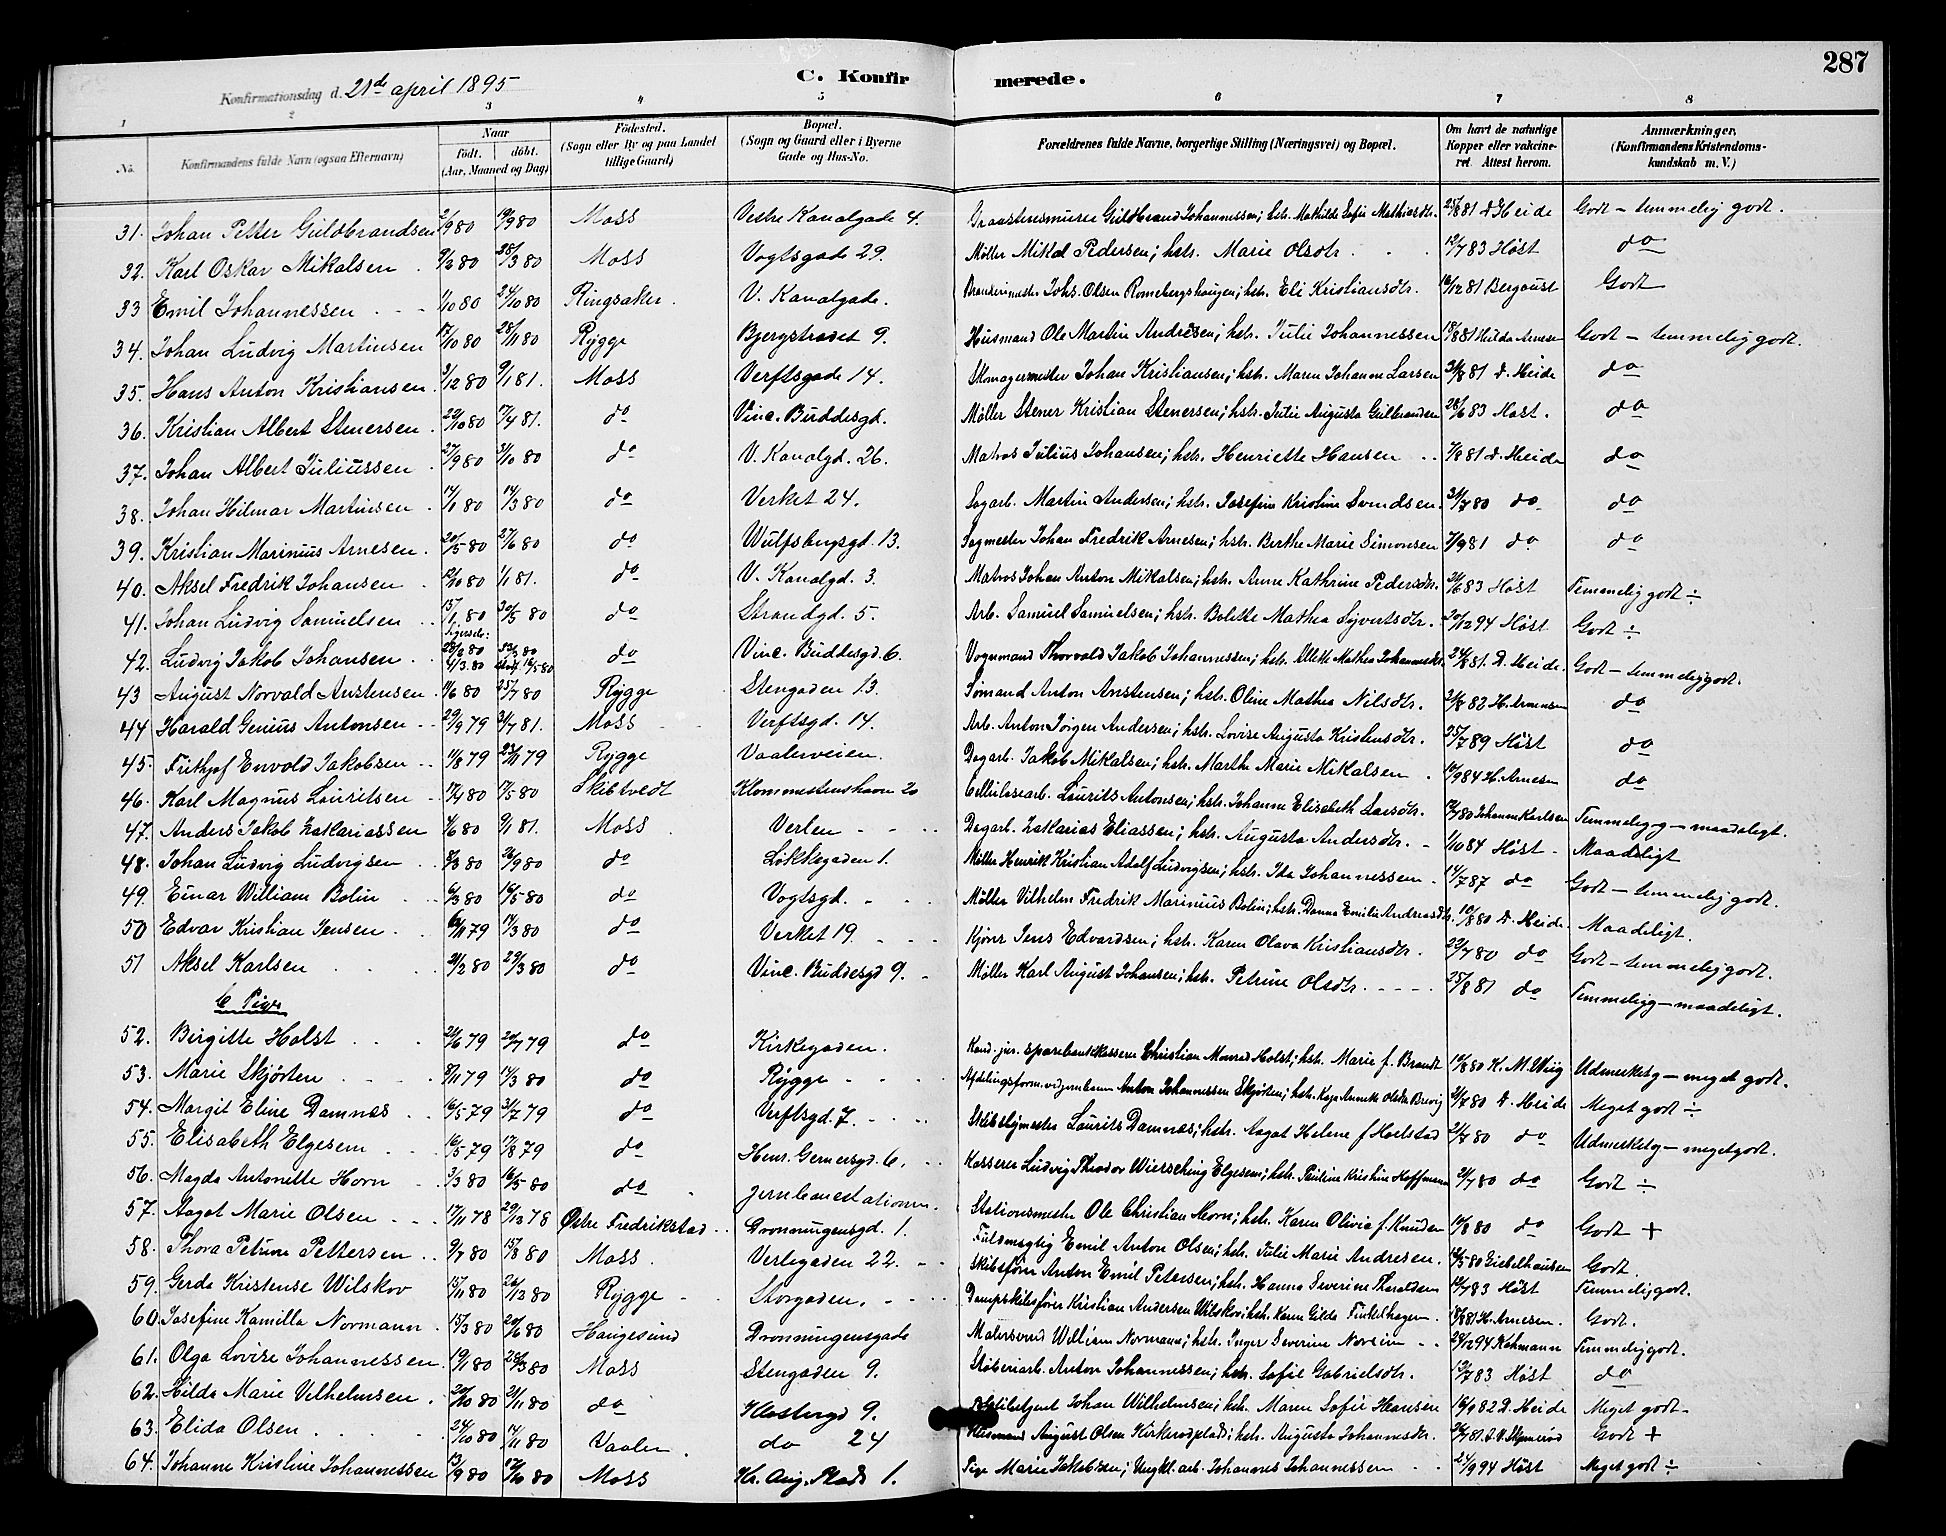 287
C. Konfirmerede.
Konfirmationsdag d. 21de april 1895
1 2 3 4 5 6 7 8
No. Konfirmandens fulde Navn (ogsaa Efternavn) Naar født. døbt. (Aar, Maaned og Dag) Fødested. (Sogn eller By og paa Landet tillige Gaard) Bopæl. (Sogn og Gaard eller i Byerne Gade og Hus-No. Forældrenes fulde Navne, borgerlige Stilling (Næringsvei) og Bopæl. Om havt de naturlige Kopper eller vakcineret. Attest herom. Anmærkninger. (Konfirmandens Kristendomskundskab m. V.)
31. Johan Petter Guldbrandsen 2/9 80 19/9 80 Moss Vestre Kanalgade 4. Guldbrand Johannessen; hstr. Mathilde Sofie Mathiasdtr. 25/8 81 D. Heide Godt – temmelig godt.
32. Karl Oskar Mikalsen 9/2 80 28/3 80 Moss Vogtsgade 29. Møller Mikal Pedersen; hstr. Marie Olsdtr. 12/7 83 Høst do
33 Emil Johannessen 1/10 80 24/10 80 Ringsaker. V. Kanalgade. Johs. Olsen Ronnebergshaugen; hstr. Eli Kristiansdtr. 16/12 81 Bergaust Godt
34. Johan Ludvig Martinsen 17/10 80 28/11 80 Rygge Bjergstrædet 9. Husmand Ole Martin Andresen; hstr. Julie Johannessen 18/8 81 Hilda Arnesen Godt – temmelig godt.
35. Hans Anton Kristiansen 3/12 80 9/1 81. Moss Verftsgade 14. Skomagermester Johan Kristiansen; hstr. Maren Johanne Larsen 31/8 81 D. Heide do
36. Kristian Albert Stenersen 29/10 80 17/4 81. do Vinc. Buddesgd. Møller Stener Kristian Stenersen; hstr. Julie Augusta Gulbrandsen 28/6 83 Høst. do
37. Johan Albert Juliussen 27/9 80 31/10 80 do V. Kanalgd. 26. Matros Julius Johansen; hstr. Henriette Hansen 7/8 81 D. Heide do
38. Johan Hilmar Martinsen 14/1 80 14/3 80 do Verket 24. Sagarb. Martin Andersen; hstr. Josefine Kristine Svendsen. 21/7 80 do do
39. Kristian Marinius Arnesen 20/5 80 27/6 80 do Wulfsbergsgd. 13. Sagmester Johan Fredrik Arnesen; hstr. Berthe Marie Simonsen 7/9 81 do do
40. Aksel Fredrik Johansen 12/10 80 1/1 81. do V. Kanalgd. 3. Matros Johan Anton Mikalsen; hstr. Anne Kathrine Pedersdtr. 21/6 83 Høst Temmelig godt ÷
41. Johan Ludvig Samuelsen 15/1 80 30/5 80 do Strandgd. 5. Arb. Samuel Samuelsen; hstr. Bolette Mathea Syvertsdtr. 20/12 94 Høst Godt ÷
42. Ludvig Jakob Johansen 4/3 80 16/5 80 do Vinc. Buddesgd. 6. Vognmand Thorvald Jakob Johannessen; hstr. Mathea Johannesdtr. 24/8 81. D. Heide. Godt – temmelig godt.
43 August Norvald Anstensen 11/6 80 25/7 80 Rygge Stengaden 13. Sømand Anton Anstensen; hstr. Oline Mathea Nilsdtr. 31/8 82 H. Arnesen do
44 Harald Genius Antonsen 29/9 79 31/7 81. Moss Verftsgd. 14. Arb. Anton Jørgen Andersen; hstr. Lovise Augusta Kristensdtr. 25/7 89 Høst do
45. Frithjof Envold Jakobsen 11/8 79 23/11 79 Rygge Vaalerveien. Dagarb. Jakob Mikalsen; hstr. Marthe Marie Mikalsen 10/9 84 H. Arnesen do
46. Karl Magnus Lauritsen 17/4 80 17/5 80 Skibtvedt 20 Cellulosearb. Laurits Antonsen; hstr. Johanne Elisabeth Larsdtr. 12/7 80 Johanne Karlsen Temmelig – maadeligt.
47. Anders Jakob Zakariassen 4/6 80 9/1 81. Moss Verlen Dagarb. Zakarias Eliassen; hstr. Augusta Andersdtr. 1/10 84 Høst Maadeligt
48. Johan Ludvig Ludvigsen 8/3 80 26/9 80 do Løkkegaden 1. Møller Henrik Kristian Adolf Ludvigsen; hstr. Ida Johannessen 14/7 87 do Godt – temmelig godt.
49. Einar William Bolin 6/3 80 16/5 80 do Vogtsgd. Møller Vilhelm Fredrik Marinius Bolin; hstr. Emilie Andreasdtr. 10/8 80 D. Heide. Maadeligt.
50 Edvar Kristian Jensen 6/11 79 14/3 80 do Verket 19 Kjører Jens Edvardsen; hstr. Karen Olava Kristiansdtr. 22/7 80 do Godt – temmelig godt.
51 Aksel Karlsen 21/2 80 29/3 80 do Vinc. Buddesgd 9. Møller Karl August Johansen; hstr. Petrine Olsdtr. 25/8 81 do Temmelig – maadeligt.
b Piger
52. Birgitte Holst 24/6 79 20/7 79 do Kirkegaden. Kand. jur. sparebankkasserer Christian Monrad Holst; hstr. Marie f. Brandt 14/8 80 K. M. Wiig Udmerket – meget godt.
53. Marie Skjørten 8/11 79 14/3 80 do Rygge Afdelingsform. ved jernbanen Anton Johannessen Skjørten; hstr. Kaja Annette Olsdtr Brevig 21/7 80 D. Heide Meget godt ÷
54. Margit Eline Damnæs 16/5 79 31/7 79 do Verftsgd. 7. Skibsbygmester Laurits Damnæs; hstr. Aagot Helene f Hoelstad 21/7 80 do Udmerket – meget godt.
55. Elisabeth Elgesem 16/5 79 17/8 79 do Henr. Gernersgd. 6. Kasserer Ludvig Theodor Elgesem; hstr. Pauline Kristine Hoffmann 21/7 80 do Godt ÷
56. Magda Antonette Horn 3/3 80 16/5 80 do jernbanestationen. Stationsmester Ole Christian Horn; hstr. Karen Olivia f. Knudsen 14/8 80 do Godt +
57. Aagot Marie Olsen 17/11 78 29/12 78 Østre Fredrikstad Dronningensgd. 1. Fuldmægtig Emil Anton Olsen; hstr. Julie Marie Andresen. 14/5 80 Giebelhausen Godt.
58. Thora Petrine Pettersen 9/7 80 15/8 80 Moss. Verlegaden 22. Skibsfører Anton Emil Petersen; hstr. Hanna Severine Tharaldsen 12/7 83 Høst Temmelig godt.
59. Gerda Kristense Wilskov 15/11 80 26/12 80 Rygge Storgaden. Dampskibsfører Kristian Andersen Wilskov; hstr. Karen Gilda Finkelhagen 18/8 81 H. Arnesen. Godt.
60. Josefine Kamilla Normann 15/3 80 20/6 80 Haugesund Dronningensgade Malersvend William Normann; hstr. Inger Severine 24/12 94 Kohmann Temmelig godt.
61. Olga Lovise Johannessen 19/1 80 28/3 80 Moss Stengaden 9. Støberiarb. Anton Johannessen; hstr. Sofie Gabrielsdtr. 12/7 83 Høst do
62. Hilda Marie Vilhelmsen 20/10 80 21/11 80 do Klostergd 9. Johan Wilhelmsen; hstr. Maren Sofie Hansen 16/9 82 D. Heide Meget godt
63. Elida Olsen 24/10 80 14/11 80 Vaaler. do 24 Husmand August Olsen Kirkerødplads; hstr. Augusta Johannesdtr. 24/7 81. Godt +
64. Johanne Kristine Johannessen 13/9 80 17/10 80 Moss Kr. Aug. Plads 1. Pige Marie Jakobsen; Ungkl. arb. Johannes Johannessen 21/9 94 Høst Meget godt ÷